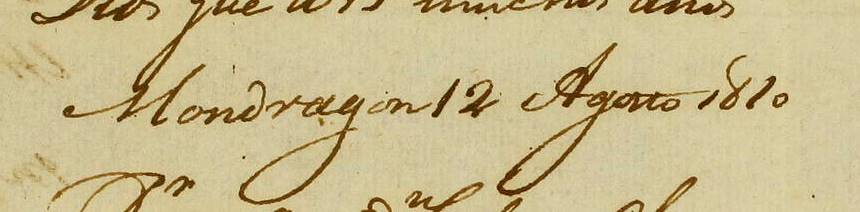 Dios gue a VS muchos años
Mondragon 12 Agosto 1810